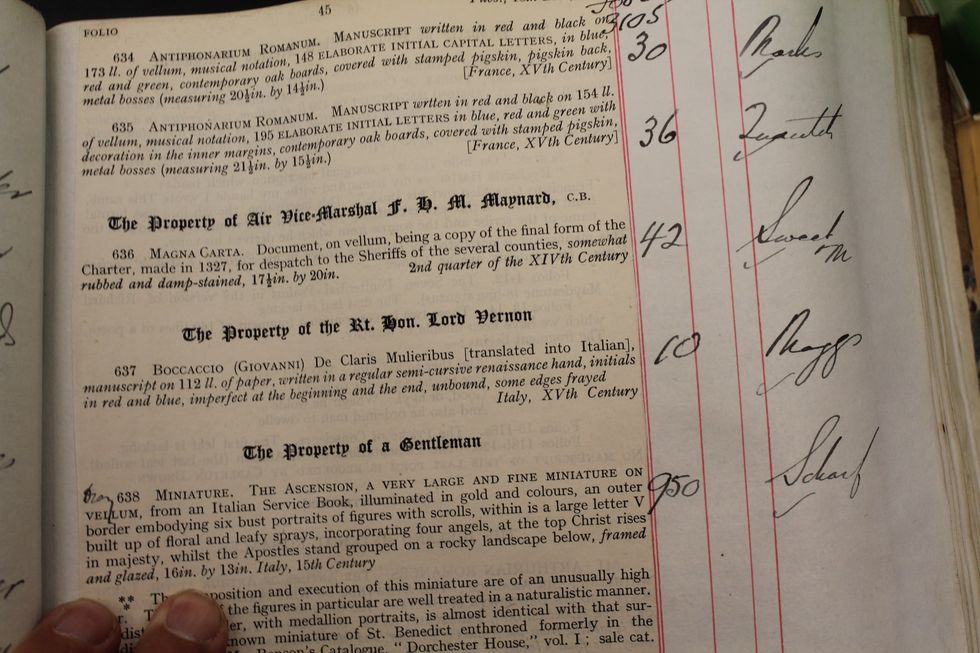 45
FOLIO
3105
634 ANTIPHONARIUM ROMANUM. MANUSCRIPT written in red and black on
173 ll. of vellum, musical notation, 148 ELABORATE INITIAL CAPITAL LETTERS, in blue,
red and green, contemporary oak boards, covered with stamped pigskin, pigskin back,
metal bosses (measuring 20½in. by 14½in.) [France, XVth Century]
30 Marks
635 ANTIPHONARIUM ROMANUM. MANUSCRIPT written in red and black on 154 ll.
of vellum, musical notation, 195 ELABORATE INITIAL LETTERS in blue, red and green with
decoration in the inner margins, contemporary oak boards, covered with stamped pigskin,
metal bosses (measuring 21½in. by 15½in.) [France, XVth Century]
36
The Property of Air Vice-Marshal F. H. M. Maynard, C.B.
636 MAGNA CARTA. Document, on vellum, being a copy of the final form of the
Charter, made in 1327, for despatch to the Sheriffs of the several counties, somewhat
rubbed and damp-stained, 17½in. by 20in. 2nd quarter of the XIVth Century
42 Sweet
The Property of the Rt. Hon. Lord Vernon
637 BOCCACCIO (GIOVANNI) De Claris Mulieribus [translated into Italian],
manuscript on 112 ll. of paper, written in a regular semi-cursive renaissance hand, initials
in red and blue, imperfect at the beginning and the end, unbound, some edges frayed
Italy, XVth Century
10 Maggs
The Property of a Gentleman
638 MINIATURE. THE ASCENSION, A VERY LARGE AND FINE MINIATURE ON
VELLUM, from an Italian Service Book, illuminated in gold and colours, an outer
border embodying six bust portraits of figures with scrolls, within is a large letter V
built up of floral and leafy sprays, incorporating four angels, at the top Christ rises
in majesty, whilst the Apostles stand grouped on a rocky landscape below, framed
and glazed, 16in. by 13in. Italy, 15th Century
950 Scharf
** position and execution of this miniature are of an unusually high
* the figures in particular are well treated in a naturalistic manner.
with medallion portraits, is almost identical with that sur-
miniature of St. Benedict enthroned formerly in the
Catalogue, "Dorchester House," vol. I; sale cat.